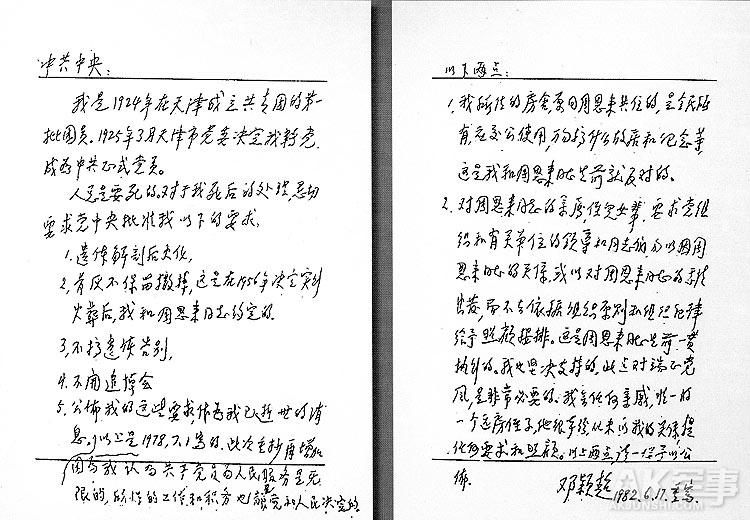 中共中央：
我是1924年在天津成立共青团的第一
批团员。1925年3月天津市党委决定我转党，
成为中共正式党员。
人总是要死的。对于我死后的处理，恳切
要求党中央批准我以下的要求：
1.遗体解剖后火化。
2.骨灰不保留，撒掉，这是在1956年决定实行
火葬后，我和周恩来同志约定的。
3.不搞遗体告别。
4.不开追悼会
5.公布我的这些要求，作为我已逝世的消
息。以上是1978.7.1写的。此次重抄再增加
因为我认为共产党员为人民服务是无
限的，所作的工作和职务也都是党和人民决定的
以下两点：
1.我所住的房舍，原同周恩来共住的，是全民所
有，应交公使用，万勿搞什么故居和纪念等，
这是我和周恩来同志生前就反对的。
2.对周恩来同志的亲属，侄儿女辈，要求党组
织和有关单位的领导和同志们，勿以因周
恩来同志的关系，或以对周恩来同志的感情
出发，而不去依据组织原则和组织纪律
给予照顾安排。这是周恩来同志生前一贯
执行的。我也坚决支持的。此点对端正党
风，是非常必要的。我无任何亲戚，唯一的
一个远房侄子，他很本份，从未以我的关系提
任何要求和照顾。以上两点请一并予以公
布。
邓颖超 1982.6.17.重写
AK军事
AKJUNSHI.COM